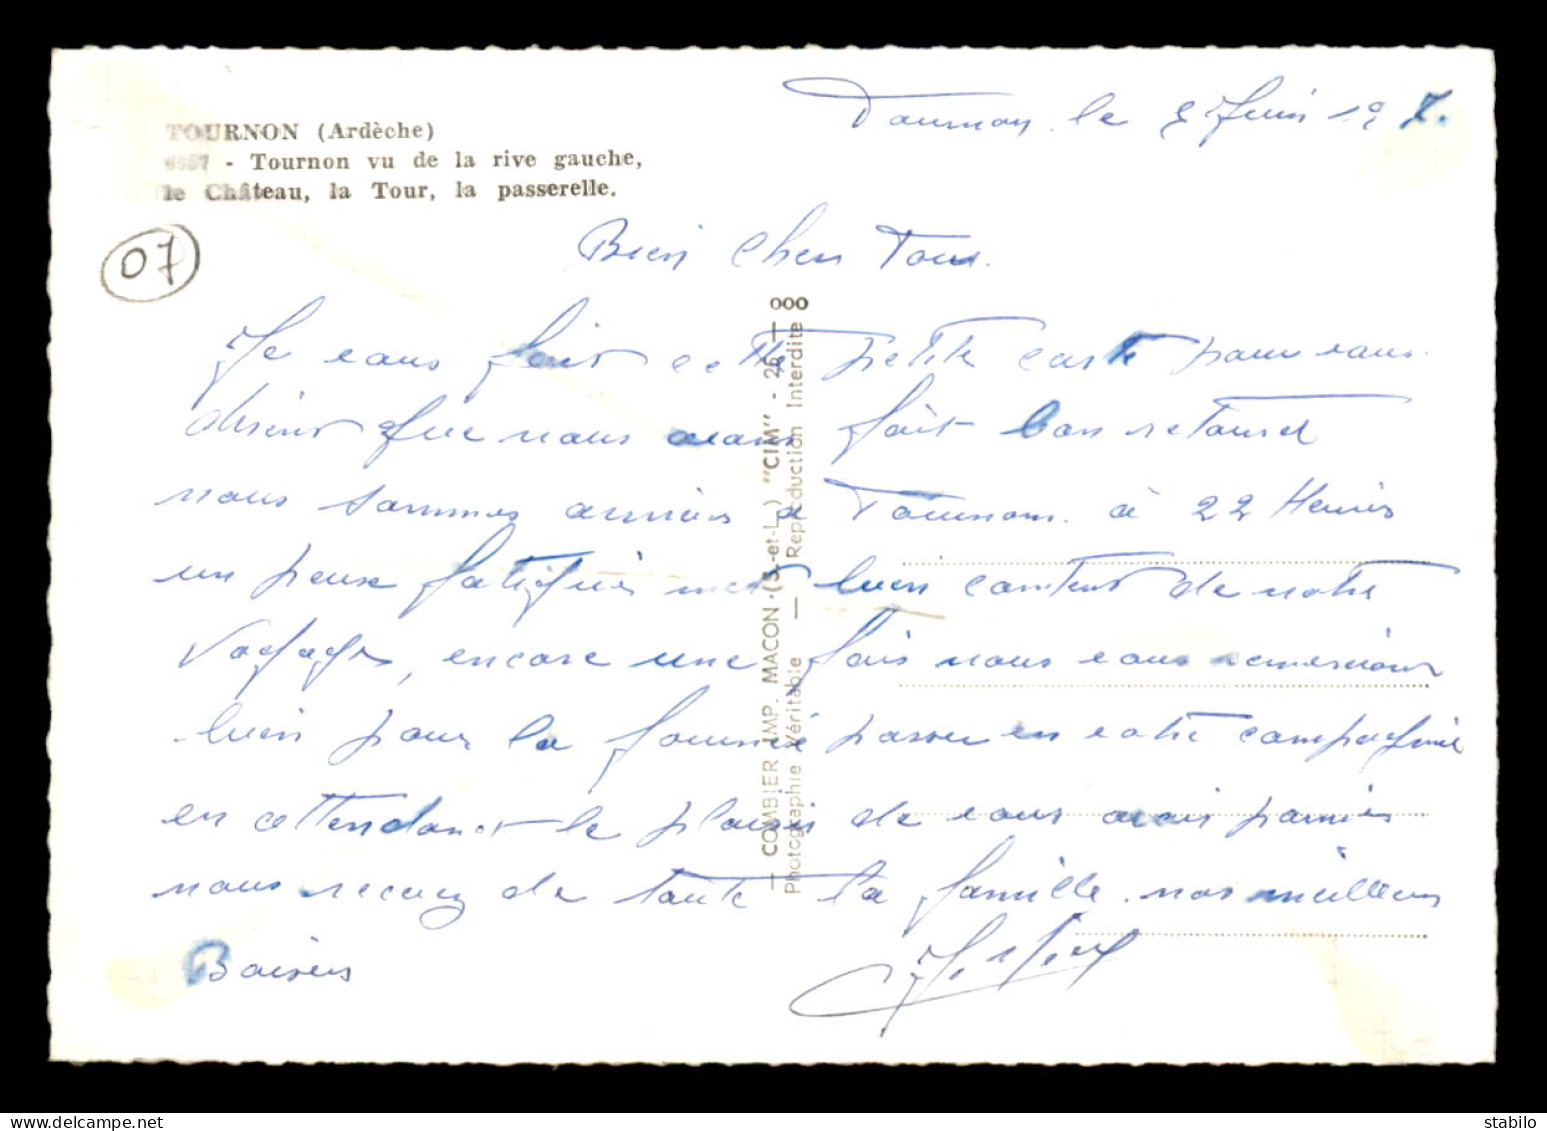 TOURNON (Ardèche)
6657 - Tournon vu de la rive gauche,
le Château, la Tour, la passerelle.
07
Tournon le Juin 19
Bien Cher Tous.
Je vous fait cette petite carte pour vous
dire que nous avons fait bon retour et
nous sommes arrivés a Tournon à 22 Heures
un peux fatigués mes bien content de notre
Voyage, encore une fois nous vous remercions
bien pour la journée passer en votre compagnie
en attendant le plaisir de vous avoir parmis
nous recevez de toute la famille nos meilleurs
Baisers
— COMBIER IMP. MACON (S.-et-L.) "CIM" - 26 — 000
Photographie Véritable — Reproduction Interdite
stabilo